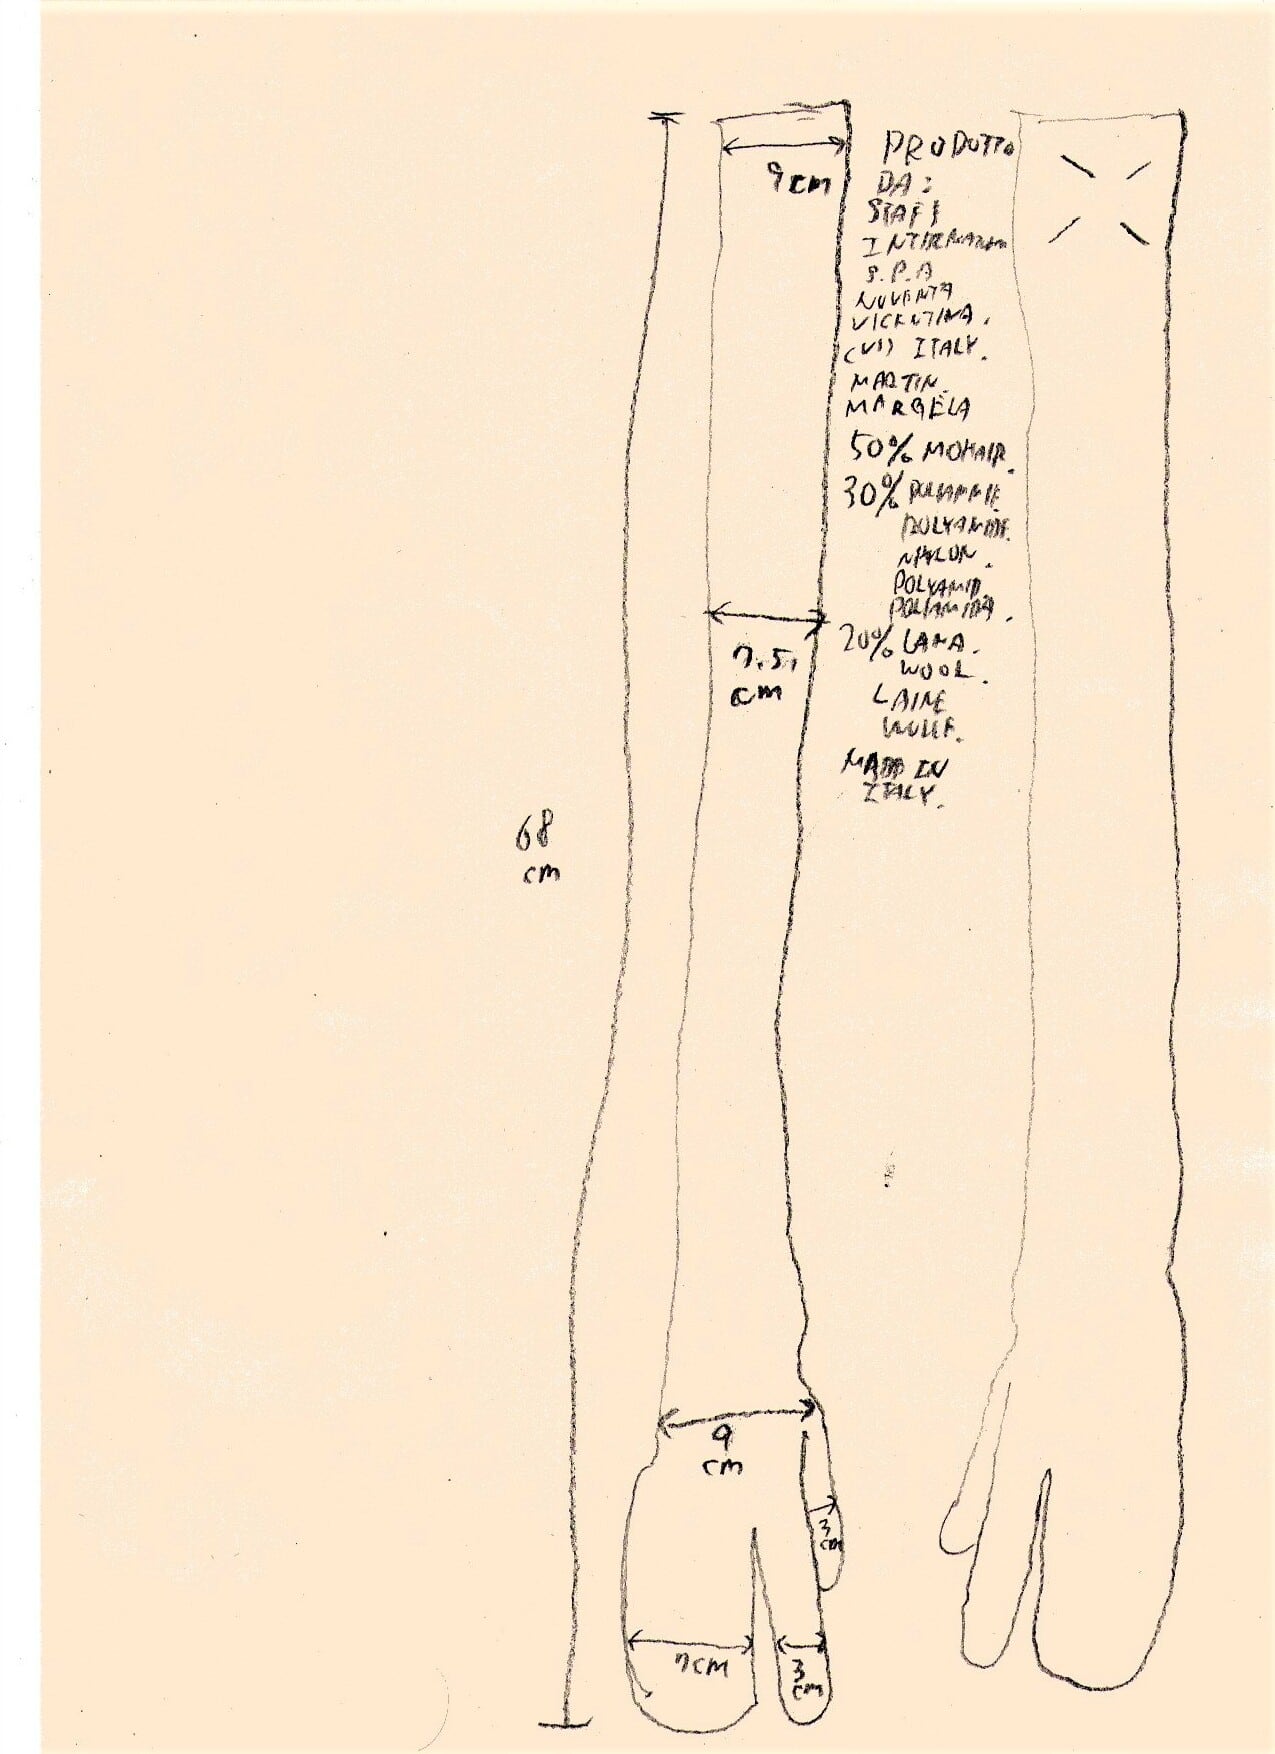 9 cm
PRODUTTO
DA:
STAFF
S.P.A
NOVENTA
VICENTINA.
(VI) ITALY.
MARTIN
MARGELA
50% MOHAIR.
30%
POLYAMIDE.
NYLON.
POLYAMID
POLIAMIDA.
20% LANA.
WOOL.
LAINE
WOLLE.
MADE IN
ITALY.
7.5.
cm
68
cm
9
cm
3
cm
7cm
3
cm